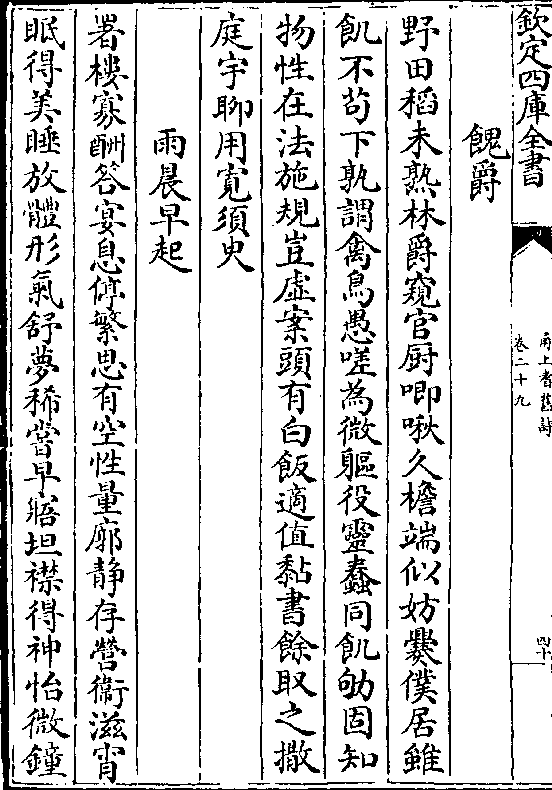 欽定四庫全書
甬上耆舊詩
卷二十九
四十
餽爵
野田稻未熟林爵窺官厨唧啾久檐端似妨爨僕居雖
飢不苟下孰謂禽鳥愚嗟為微軀役靈蠢同飢劬固知
物性在法施規豈虛案頭有白飯適值黏書餘取之撒
庭宇聊用寬須臾
雨晨早起
署樓寡酬答宴息停繁思有空性量廓静存營衞滋宵
眠得美睡放體形氣舒夢稀嘗早寤坦襟得神怡微鐘